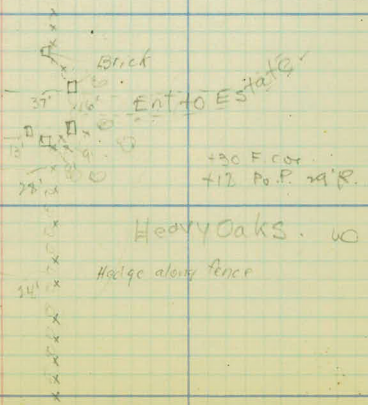 Brick
37'
16'
Ent to Estate
13'
9'
+90 F. Cor.
+12 Po. P. 29' R.
28'
Heavy Oaks.
Hedge along fence
24'